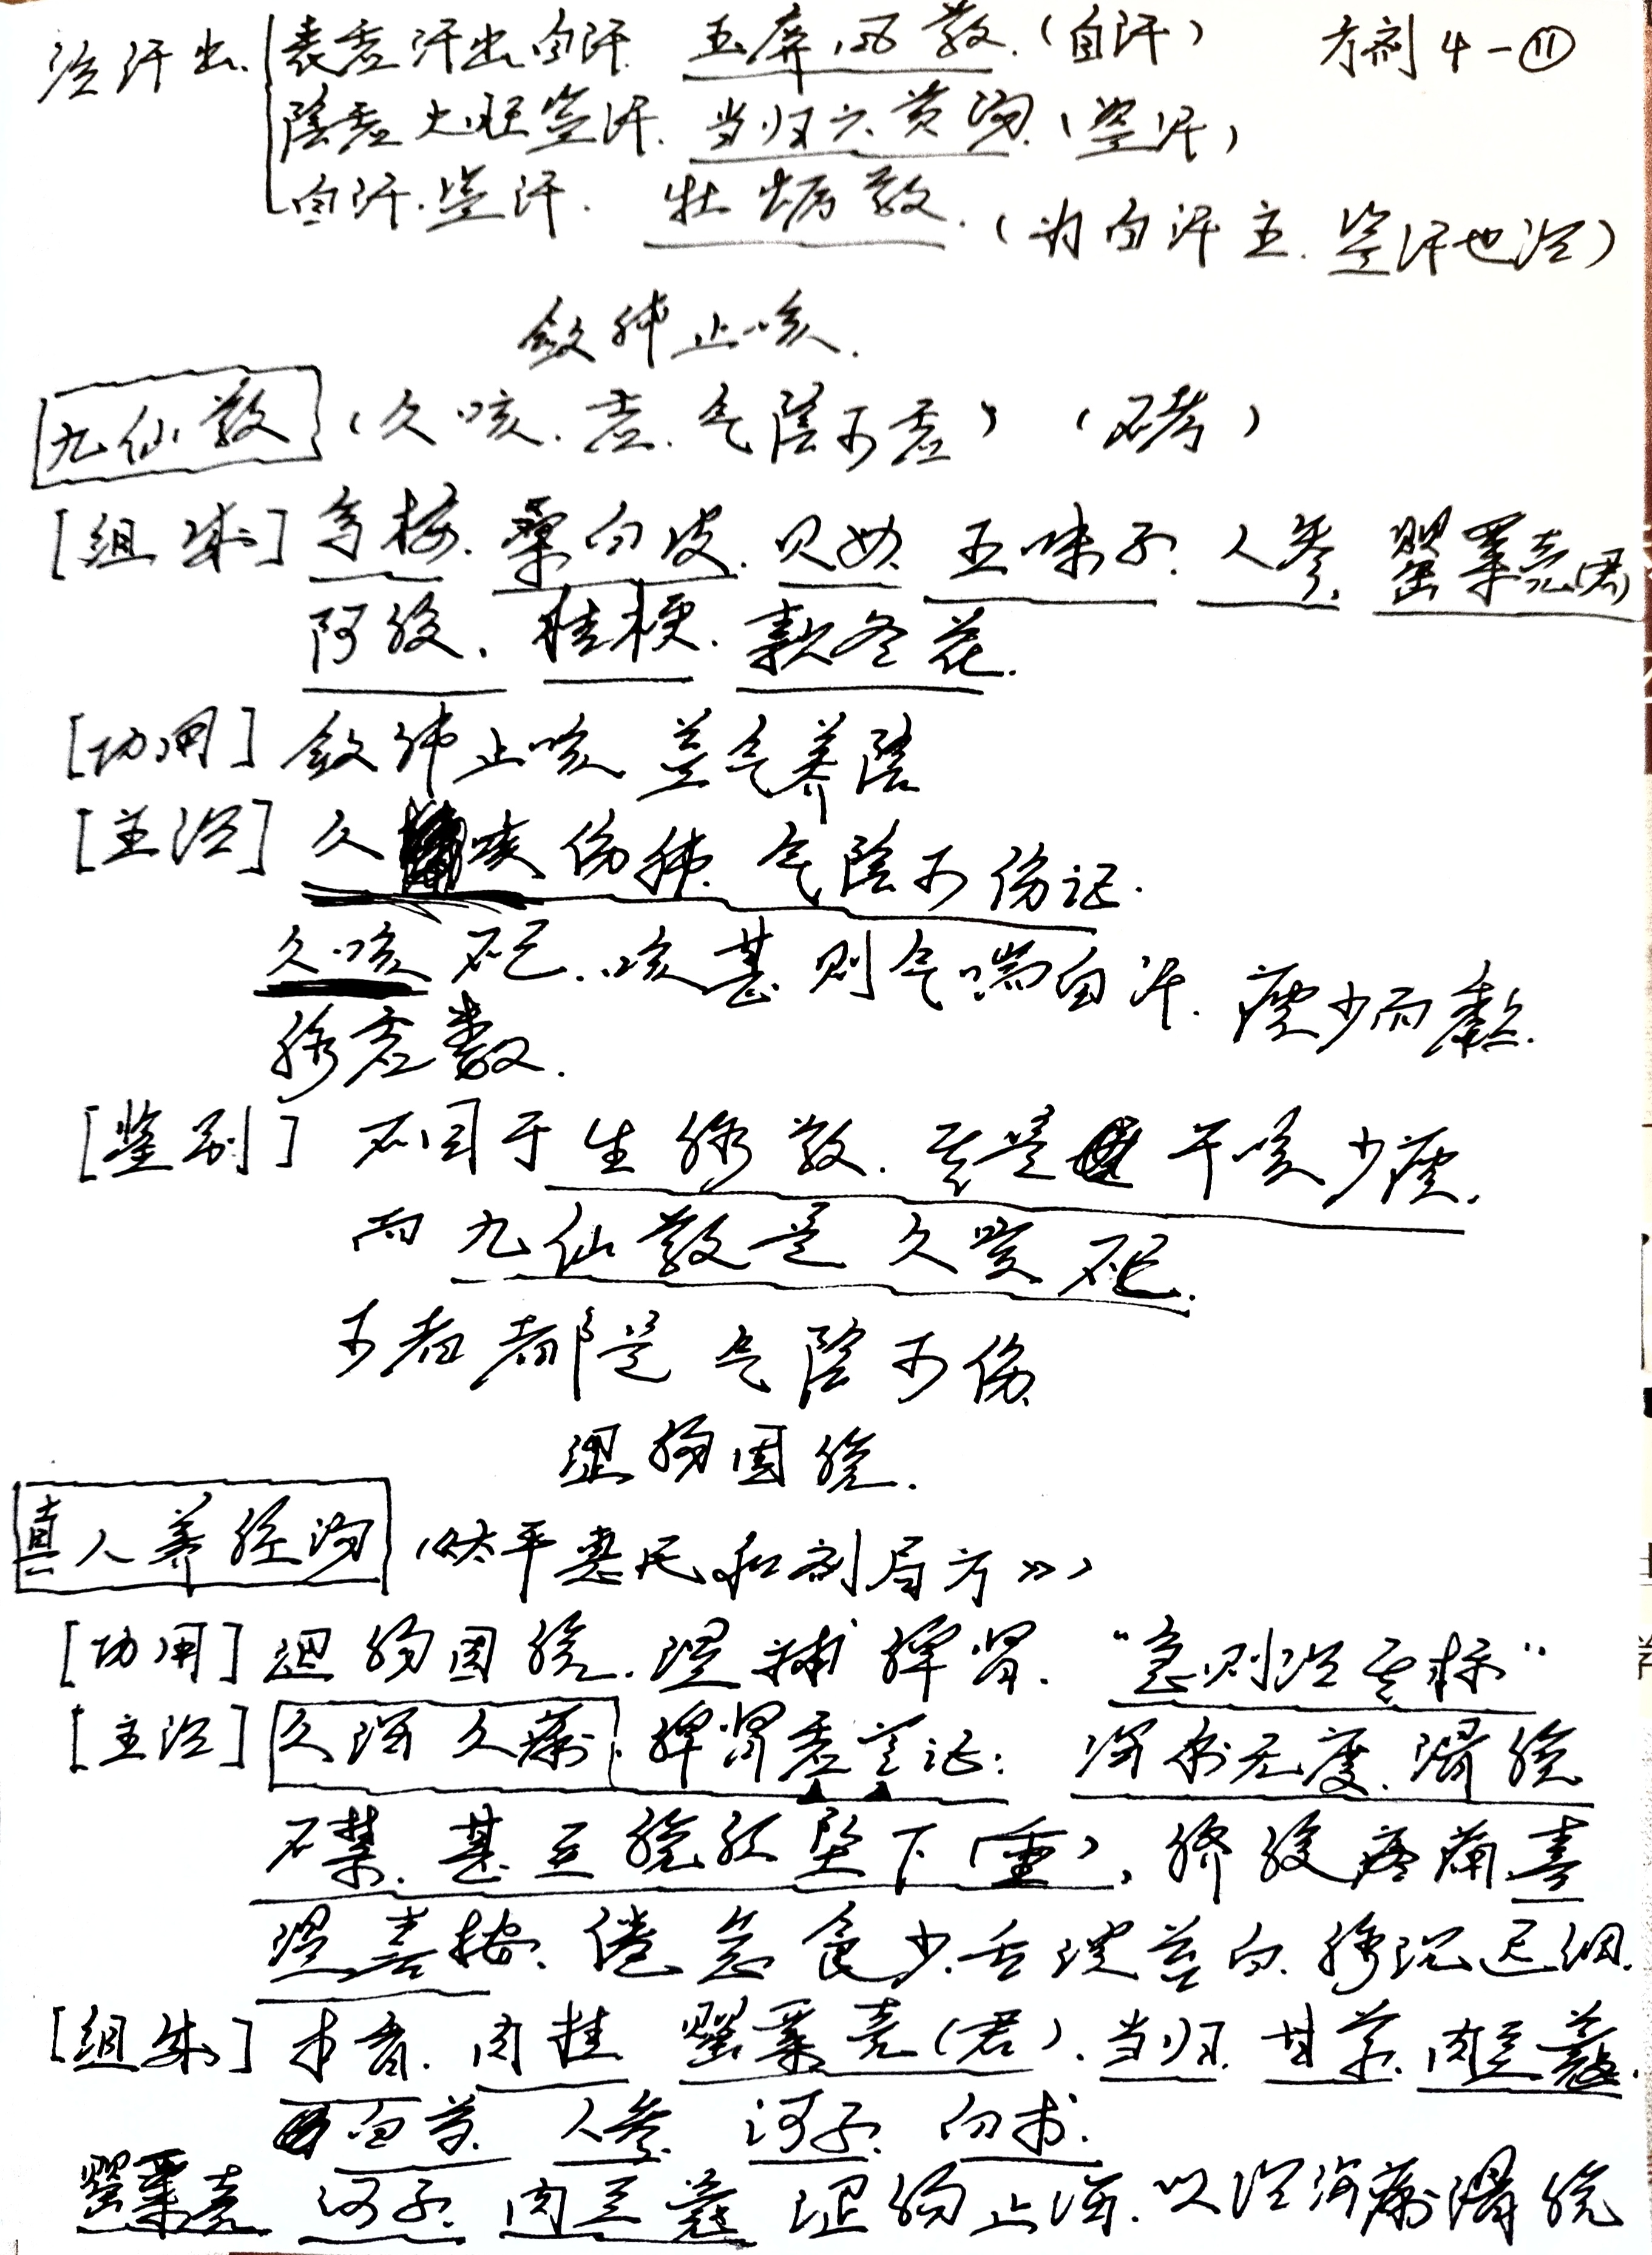 治汗出 表虚汗出自汗 玉屏风散.(自汗) 方剂4-⑪
陰虚火旺盗汗. 当归六黄湯.(盗汗)
自汗.盗汗. 牡蛎散.(为自汗主.盗汗也治)
敛肺止咳.
九仙散 (久咳.虚.气陰不虚) (不考)
[组成] 乌梅.桑白皮.贝母.五味子.人参.罂粟壳(君)
阿胶.桔梗.款冬花.
[功用] 敛肺止咳 益气养陰
[主治] 久咳伤肺.气陰不伤证.
久咳不已.咳甚则气喘自汗.痰少而黏.
脉虚数.
[鉴别] 不同于生脉散.其是干咳少痰.
而九仙散是久咳不已.
不者都是气陰不伤
涩肠固脱.
真人养脏湯 (《太平惠民和剂局方》)
[功用] 涩肠固脱.温补脾肾. “急则治其标”
[主治] 久泻久痢.脾肾虚寒证: 泻痢无度.滑脱
不禁.甚至脱肛坠下(重),脐腹疼痛喜
温喜按.倦怠食少.舌淡苔白.脉沉迟细.
[组成] 木香.肉桂 罂粟壳(君).当归.甘草.肉豆蔻.
白芍.人参.诃子.白术.
罂粟壳 诃子.肉豆蔻 涩肠止泻.以治泻痢滑脱